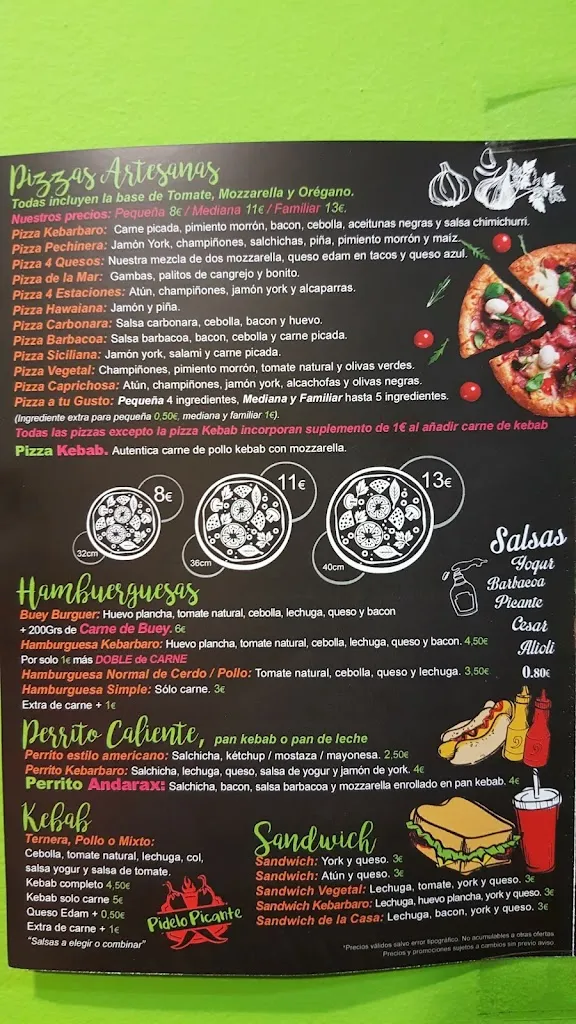 Pizzas Artesanas
Todas incluyen la base de Tomate, Mozzarella y Orégano.
Nuestros precios: Pequeña 8€ / Mediana 11€ / Familiar 13€.
Pizza Kebarbaro: Carne picada, pimiento morrón, bacon, cebolla, aceitunas negras y salsa chimichurri.
Pizza Pechinera: Jamón York, champiñones, salchichas, piña, pimiento morrón y maiz.
Pizza 4 Quesos: Nuestra mezcla de dos mozzarella, queso edam en tacos y queso azul.
Pizza de la Mar: Gambas, palitos de cangrejo y bonito.
Pizza 4 Estaciones: Atún, champiñones, jamón york y alcaparras.
Pizza Hawaiana: Jamón y piña.
Pizza Carbonara: Salsa carbonara, cebolla, bacon y huevo.
Pizza Barbacoa: Salsa barbacoa, bacon, cebolla y carne picada.
Pizza Siciliana: Jamón york, salami y carne picada.
Pizza Vegetal: Champiñones, pimiento morrón, tomate natural y olivas verdes.
Pizza Caprichosa: Atún, champiñones, jamón york, alcachofas y olivas negras.
Pizza a tu Gusto: Pequeña 4 ingredientes, Mediana y Familiar hasta 5 ingredientes.
(Ingrediente extra para pequeña 0,50€, mediana y familiar 1€).
Todas las pizzas excepto la pizza Kebab incorporan suplemento de 1€ al añadir carne de kebab
Pizza Kebab. Autentica carne de pollo kebab con mozzarella.
8€ 11€ 13€
32cm 36cm 40cm
Salsas
Yogur
Barbacoa
Picante
Cesar
Alioli
0.80€
Hambuerguesas
Buey Burguer: Huevo plancha, tomate natural, cebolla, lechuga, queso y bacon
+ 200Grs de Carne de Buey. 6€
Hamburguesa Kebarbaro: Huevo plancha, tomate natural, cebolla, lechuga, queso y bacon. 4,50€
Por solo 1€ más DOBLE de CARNE
Hamburguesa Normal de Cerdo / Pollo: Tomate natural, cebolla, queso y lechuga. 3,50€
Hamburguesa Simple: Sólo carne. 3€
Extra de carne + 1€
Perrito Caliente, pan kebab o pan de leche
Perrito estilo americano: Salchicha, kétchup / mostaza / mayonesa. 2,50€
Perrito Kebarbaro: Salchicha, lechuga, queso, salsa de yogur y jamón de york. 4€
Perrito Andarax: Salchicha, bacon, salsa barbacoa y mozzarella enrollado en pan kebab. 4€
Kebab
Ternera, Pollo o Mixto:
Cebolla, tomate natural, lechuga, col,
salsa yogur y salsa de tomate.
Kebab completo 4,50€
Kebab solo carne 5€
Queso Edam + 0,50€
Extra de carne + 1€
"Salsas a elegir o combinar"
Pidelo Picante
Sandwich
Sandwich: York y queso. 3€
Sandwich: Atún y queso. 3€
Sandwich Vegetal: Lechuga, tomate, york y queso. 3€
Sandwich Kebarbaro: Lechuga, huevo plancha, york y queso. 3€
Sandwich de la Casa: Lechuga, bacon, york y queso. 3€
*Precios válidos salvo error tipográfico. No acumulables a otras ofertas
Precios y promociones sujetos a cambios sin previo aviso